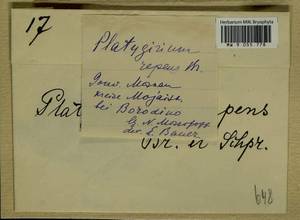 17
Herbarium MW, Bryophyta
Platygirium
repens
Gouv. Moskau
Kreise Mojaisk
bei Borodino
det. E. Bauer
Plat pens
Br. er Schpr.
648